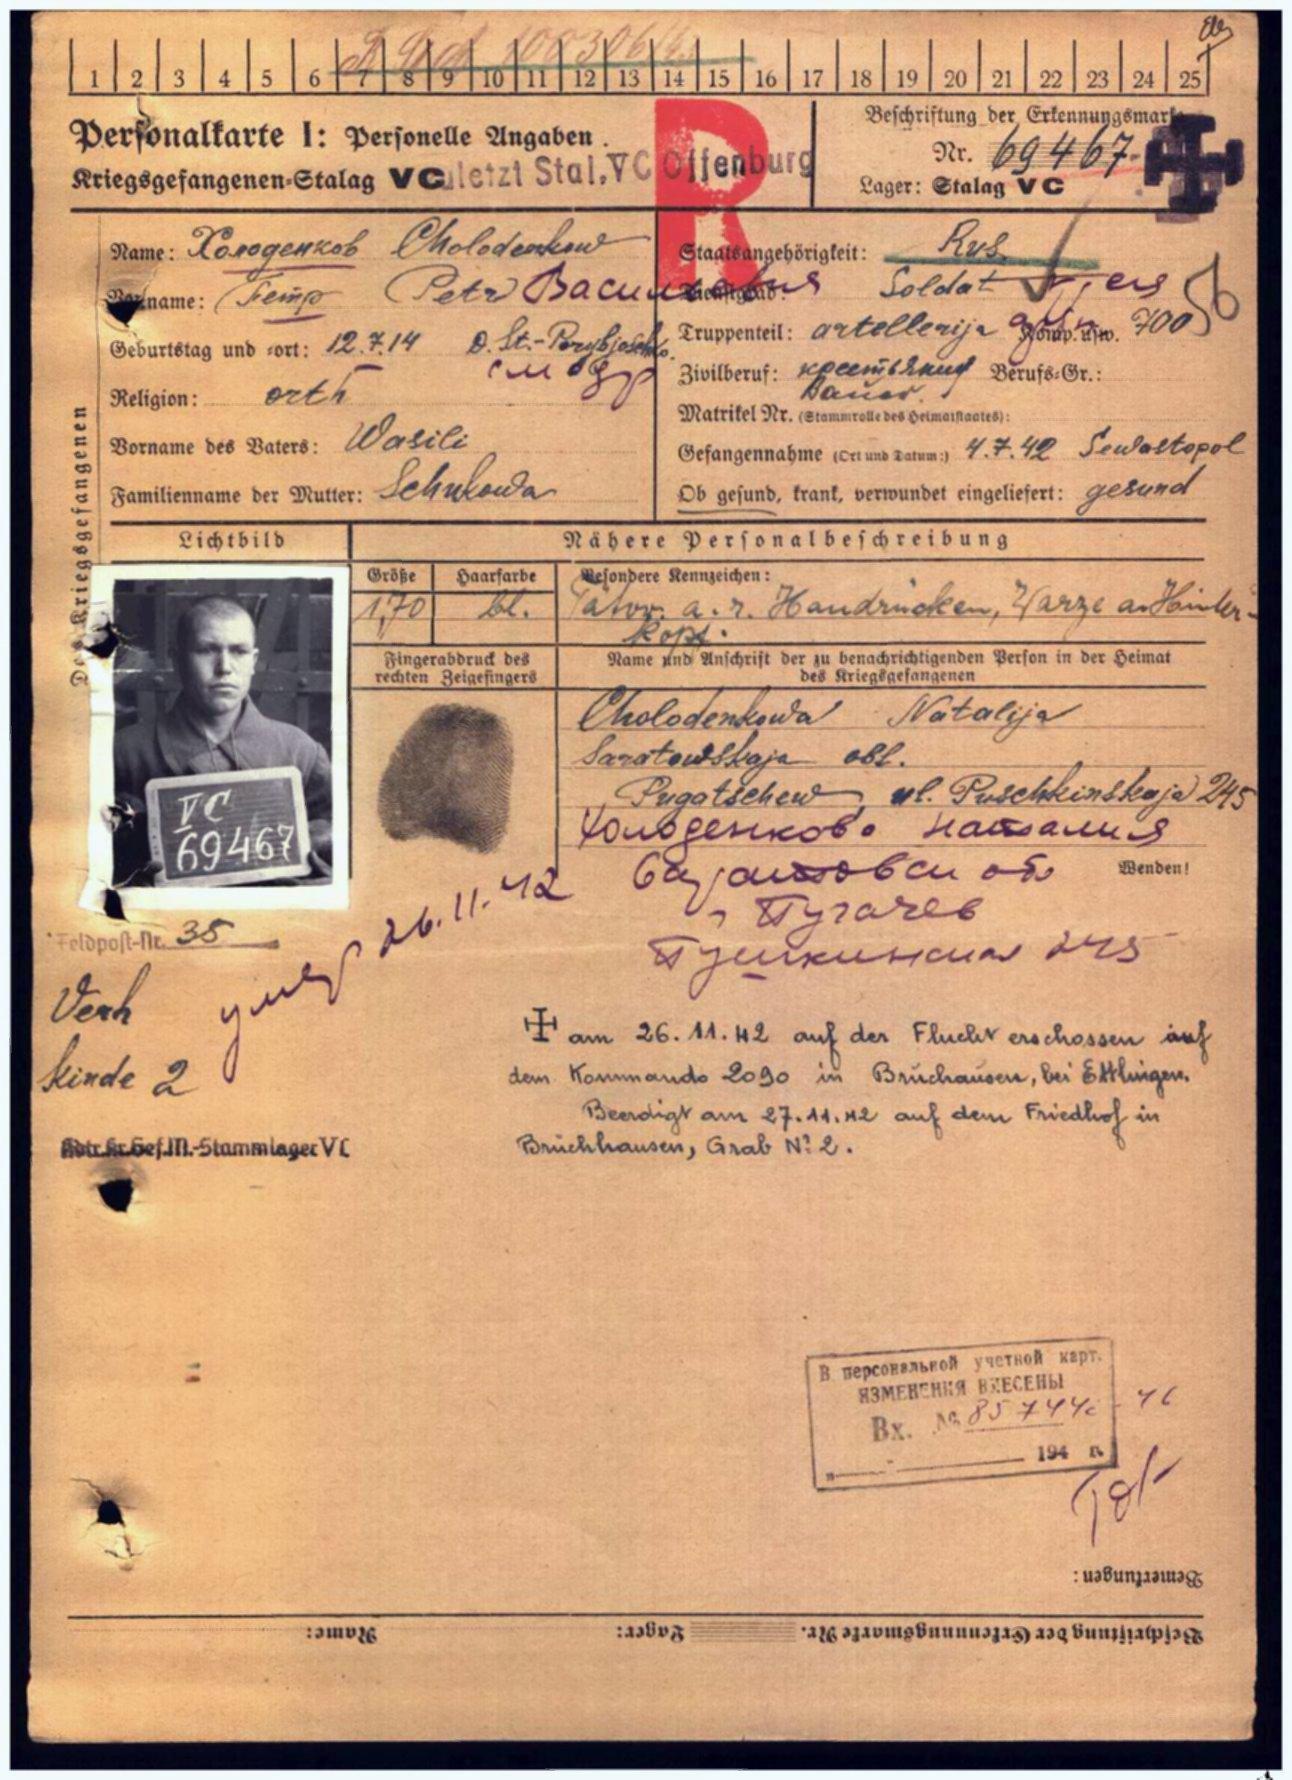 1 2 3 4 5 6 7 8 9 10 11 12 13 14 15 16 17 18 19 20 21 22 23 24 25
Personalkarte I: Personelle Angaben
Kriegsgefangenen-Stalag VC zuletzt Stal. VC Offenburg
R
Beschriftung der Erkennungsmarke
Nr. 69467
Lager: Stalag VC
Des Kriegsgefangenen
Name: Холоденков Cholodenkow
Vorname: Петр Petr Василевия
Geburtstag und -ort: 12.7.14
Religion: orth
Vorname des Vaters: Wasili
Familienname der Mutter: Schukowa
Staatsangehörigkeit: Rus.
Dienstgrad: Soldat
Truppenteil: artellerija Komp. usw. 700
Zivilberuf: крестьянин Berufs-Gr.:
Bauer.
Matrikel Nr. (Stammrolle des Heimatstaates):
Gefangennahme (Ort und Datum:) 4.7.42 Sewastopol
Ob gesund, krank, verwundet eingeliefert: gesund
56
Lichtbild
Nähere Personalbeschreibung
Größe Haarfarbe Besondere Kennzeichen:
1,70 bl. Tätow. a. r. Handrücken, Warze a. Hinter-
kopf.
Fingerabdruck des
rechten Zeigefingers
Name und Anschrift der zu benachrichtigenden Person in der Heimat
des Kriegsgefangenen
Cholodenkowa Natalija
Saratowskaja obl.
Pugatschew ul. Puschkinskaja 245
VC
69467
Холоденкова Наталия
Саратовски об
Wenden!
Пугачев
Пушкинская 245
Feldpost-Nr. 35
умер 26.11.42
Verh
Kinde 2
am 26.11.42 auf der Flucht erschossen auf
dem Kommando 2090 in Bruchausen, bei Ettlingen.
Beerdigt am 27.11.42 auf dem Friedhof in
Bruchhausen, Grab Nr. 2.
Kdtr. Kr. Gef. M.-Stammlager VC
В персональной учетной карт.
ИЗМЕНЕНИЯ ВНЕСЕНЫ
Вх. № 85744с - 46
194 г.
Bemerkungen:
Name: Lager: Beschriftung der Erkennungsmarke Nr.